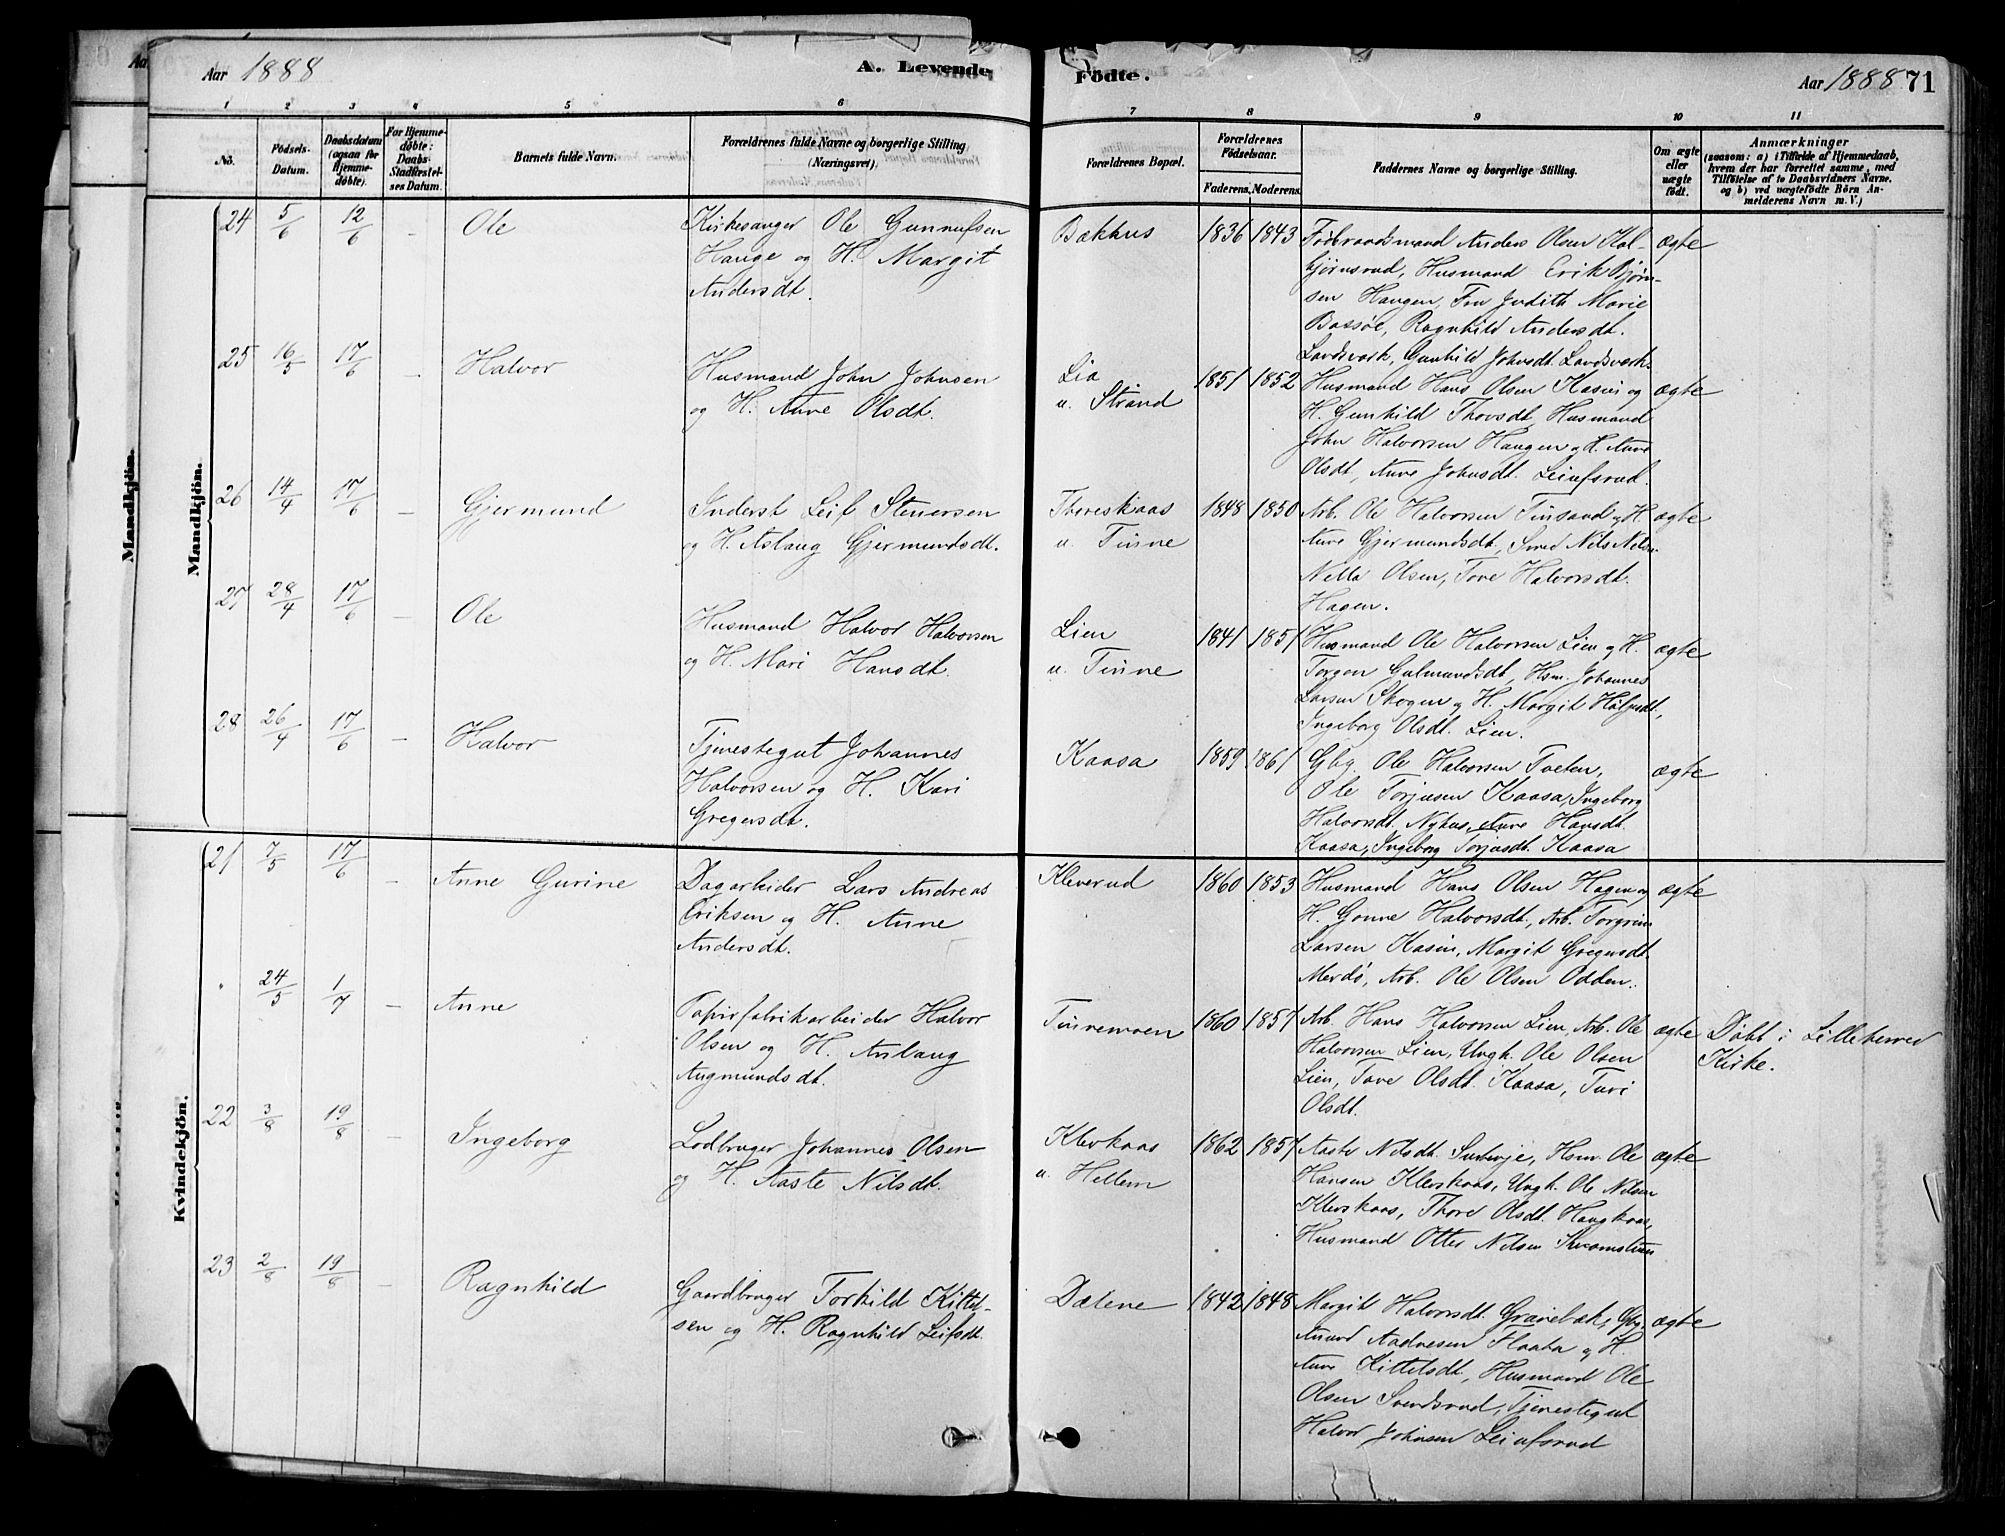 Aar 1888
A. Levende
Fødte.
Aar 1888 71
1 2 3 4 5 6 7 8 9 10 11
No.
Fødsels-Datum.
Daabsdatum (ogsaa for Hjemmedøbte).
For Hjemmedøbte: Daabs-Stadfæstelses Datum.
Barnets fulde Navn.
Forældrenes fulde Navne og borgerlige Stilling (Næringsvei).
Forældrenes Bopæl.
Forældrenes Fødselsaar.
Faderens. Moderens.
Faddernes Navne og borgerlige Stilling.
Om ægte eller uægte født.
Anmærkninger
(saasom: a) i Tilfælde af Hjemmedaab,
hvem der har forrettet samme, med
Tilføielse af to Daabsvidners Navne,
og b) ved uægtefødte Børn An-
melderens Navn m. V.)
Mandkjön.
Mandkjön.
24 5/6 12/6 - Ole
Kirkesanger Ole Gunnufsen
Hauge og H. Margit
Andersdt.
Bækhus 1836 1843
Føderaadsmand Anders Olsen Kal-
bjørnsrud, Husmand Erik Bjørn-
sen Haugen, Fru Judith Marie
Bassøe, Ragnhild Andersdt.
Landsverk, Gunhild Johnsdt. Landsverk.
ægte
25 16/5 17/6 - Halvor
Husmand John Johnsen
og H. Anne Olsdt.
Lia
u. Strand
1851 1852
Husmand Hans Olsen Kasin og
H. Gunhild Thovsdt, Husmand
John Halvorsen Haugen og H. Anne
Olsdt, Anne Johnsdt. Leiufsrud.
ægte
26 14/4 17/6 - Gjermund
Inderst Leif Steners­en
og H. Aslaug Gjermundsdt.
Thoreskaas
u. Tinne
1848 1850
Arb. Ole Halvorsen Tinsand og H.
Anne Gjermundsdt, Smed Nils Nilsen
Olsen, Tove Halvorsdt.
Hagen.
ægte
27 28/4 17/6 - Ole
Husmand Halvor Halvorsen
og H. Mari Hansdt.
Lien
u. Tinne
1841 1851
Husmand Ole Halvorsen Lien og H.
Torgon Galmundsdt, Hsm. Johannes
Larsen Skogen og H. Margit
Ingeborg Olsdt. Lien.
ægte
28 26/4 17/6 - Halvor
Tjenestegut Johannes
Halvorsen og H. Kari
Gregersdt.
Kaasa 1859 1861
Gbr. Ole Halvorsen Tveten,
Ole Torjusen Kaasa, Ingeborg
Halvorsdt. Nyhus, Anne Hansdt.
Kaasa, Ingeborg Torjusdt. Kaasa
ægte
Kvindekjön.
21 7/5 17/6 - Anne Gurine
Dagarbeider Lars Andreas
Eriksen og H. Anne
Andersdt.
Kleverud 1860 1853
Husmand Hans Olsen Hagen og
H. Gonne Halvorsdt., Arb. Torgrim
Larsen Kasin, Margit Gregersdt.
Merdø, Arb. Ole Olsen Odden.
ægte
" 24/5 1/7 - Anne
Papirfabrikarbeider Halvor
Olsen og H. Aslaug
Augmundsdt.
Tinnemoen 1860 1857
Arb. Hans Halvorsen Lien, Arb. Ole
Halvorsen Lien, Ungk. Ole Olsen
Lien, Tove Olsdt. Kaasa, Turi
Olsdt.
ægte
Døbt i Lilleherred
Kirke.
22 3/8 19/8 - Ingeborg
Lodbruger Johannes Olsen
og H. Aaste Nilsdt.
Klevkaas
u. Hellem
1862 1857
Aaste Nilsdt. Hsm. Ole
Hansen Klevkaas, Ungk. Ole Nilsen
Klevkaas, Thore Olsdt. Haugkaas,
Husmand Otter Nilsen
ægte
23 2/8 19/8 - Ragnhild
Gaardbruger Torkild Kittil-
sen og H. Ragnhild Leifsdt.
Dælene 1842 1848
Margit Halvorsdt. Gravebæk, Gbr.
Anund Aadnesen Flaata og H.
Anne Kittelsdt, Husmand Ole
Olsen Svendsrud, Tjenestegut
Halvor Johnsen Leiufsrud
ægte